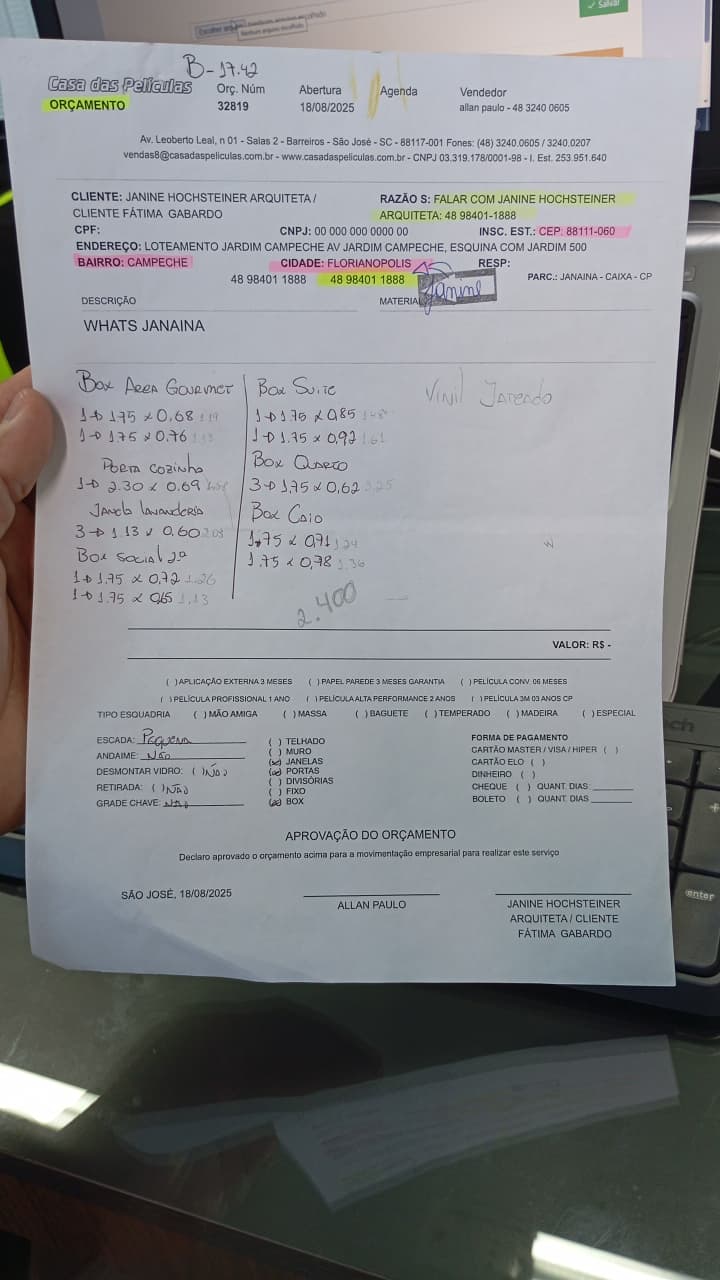 Salvar
B-17.42
Casa das Películas
ORÇAMENTO
Orç. Núm
32819
Abertura
18/08/2025
Agenda
Vendedor
allan paulo - 48 3240 0605
Av. Leoberto Leal, n 01 - Salas 2 - Barreiros - São José - SC - 88117-001 Fones: (48) 3240.0605 / 3240.0207
vendas8@casadaspeliculas.com.br - www.casadaspeliculas.com.br - CNPJ 03.319.178/0001-98 - I. Est. 253.951.640
CLIENTE: JANINE HOCHSTEINER ARQUITETA /
CLIENTE FÁTIMA GABARDO
RAZÃO S: FALAR COM JANINE HOCHSTEINER
ARQUITETA: 48 98401-1888
CPF: CNPJ: 00 000 000 0000 00 INSC. EST.: CEP: 88111-060
ENDEREÇO: LOTEAMENTO JARDIM CAMPECHE AV JARDIM CAMPECHE, ESQUINA COM JARDIM 500
BAIRRO: CAMPECHE CIDADE: FLORIANOPOLIS RESP:
48 98401 1888 48 98401 1888 Janine PARC.: JANAINA - CAIXA - CP
DESCRIÇÃO MATERIAL
WHATS JANAINA
Box Area Gourmet
1→ 1.75 x 0,68 1.19
1→ 1.75 x 0,76 1.33
Porta Cozinha
1→ 2.30 x 0.69
Janela lavanderia
3→ 1.13 x 0,60 2.03
Box social 2º
1→ 1.75 x 0,72 1.26
1→ 1.75 x 0,65 1.13
Box Suite
1→ 1.75 x 0,85 1.48
1→ 1.75 x 0,92 1.61
Box Quarto
3→ 1,75 x 0,62 3.25
Box Caio
1,75 x 0,71 1.24
1.75 x 0,78 1.36
Vinil Jateado
2.400
VALOR: R$ -
( )APLICAÇÃO EXTERNA 3 MESES ( )PAPEL PAREDE 3 MESES GARANTIA ( )PELÍCULA CONV. 06 MESES
( )PELÍCULA PROFISSIONAL 1 ANO ( )PELÍCULA ALTA PERFORMANCE 2 ANOS ( )PELÍCULA 3M 03 ANOS CP
TIPO ESQUADRIA ( )MÃO AMIGA ( )MASSA ( )BAGUETE ( )TEMPERADO ( )MADEIRA ( )ESPECIAL
ESCADA: Pequena
ANDAIME: Não
DESMONTAR VIDRO: ( ) Não
RETIRADA: ( ) Não
GRADE CHAVE: Não
( ) TELHADO
( ) MURO
(x) JANELAS
(x) PORTAS
( ) DIVISÓRIAS
( ) FIXO
(x) BOX
FORMA DE PAGAMENTO
CARTÃO MASTER / VISA / HIPER ( )
CARTÃO ELO ( )
DINHEIRO ( )
CHEQUE ( ) QUANT. DIAS:
BOLETO ( ) QUANT. DIAS
APROVAÇÃO DO ORÇAMENTO
Declaro aprovado o orçamento acima para a movimentação empresarial para realizar este serviço
SÃO JOSÉ, 18/08/2025
ALLAN PAULO
JANINE HOCHSTEINER
ARQUITETA / CLIENTE
FÁTIMA GABARDO
enter